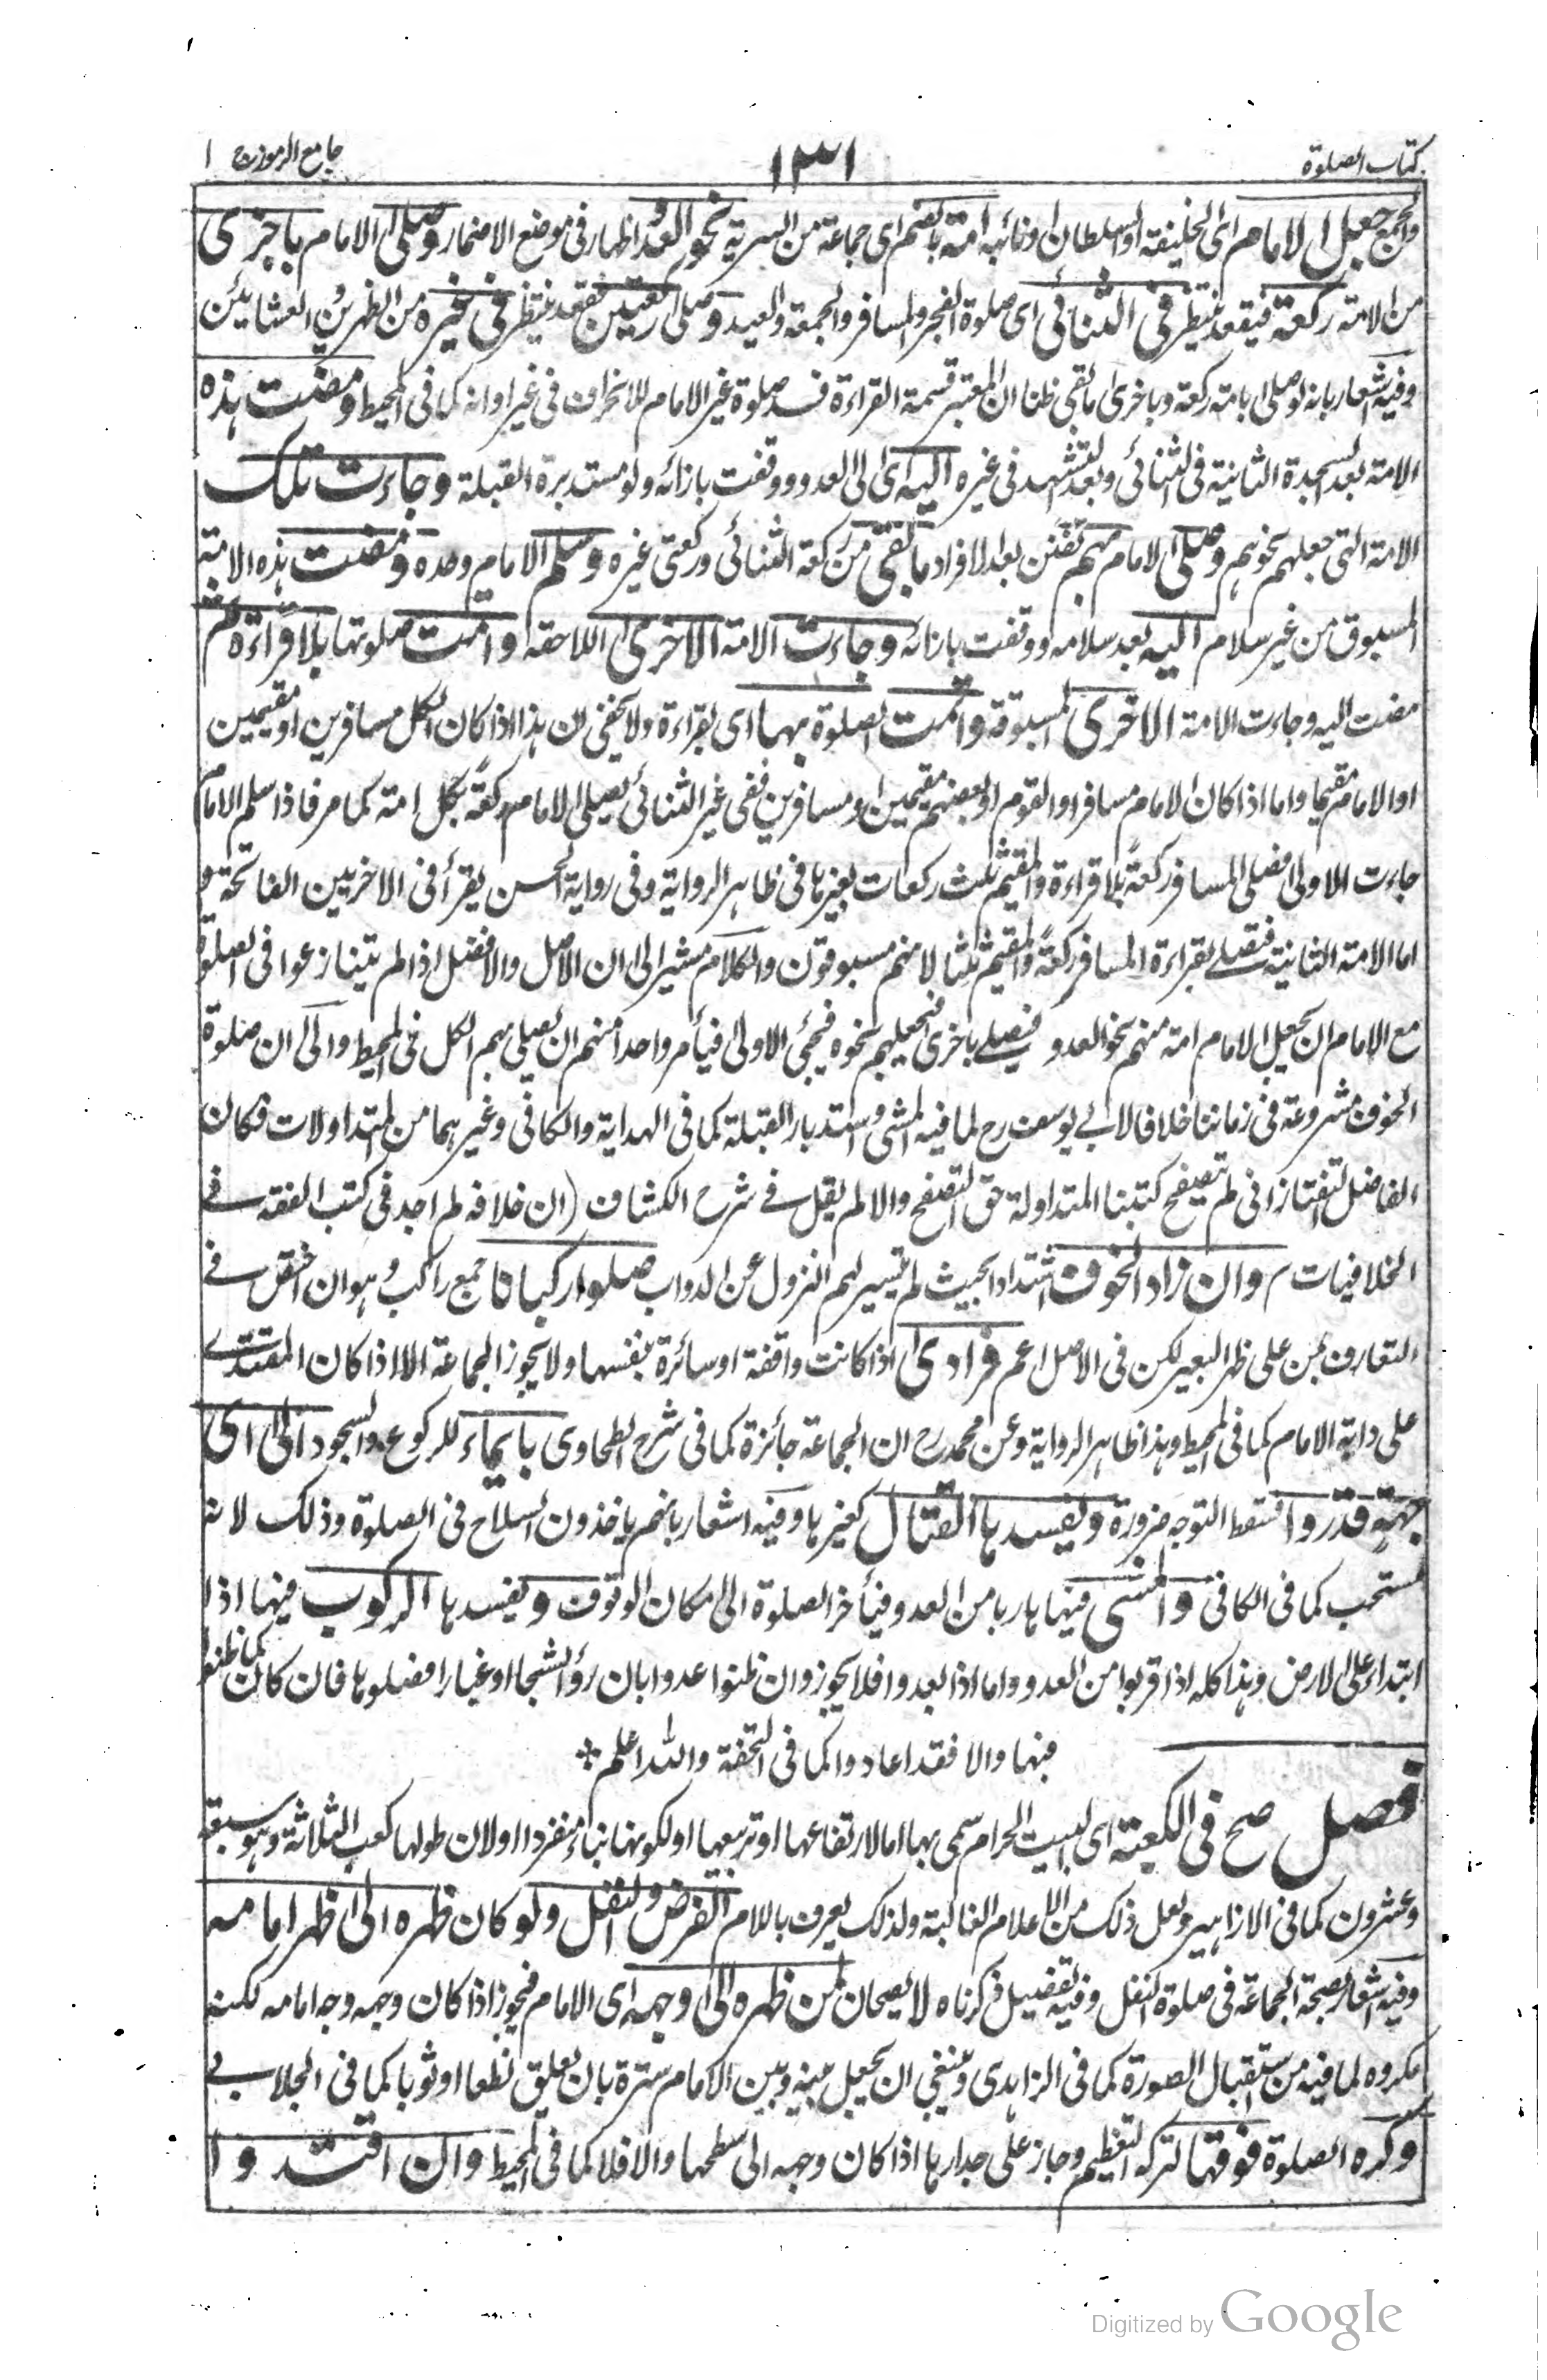 كتاب الصلوة
١٣١
جامع الرموز ج ١
والجمع جعل الامام اى الخليفة او السلطان او نائبه امة بالضم اى جماعة من السرية نحو العدو اظهار فى موضع الاضمار وصلى الامام باخرى
من الامة ركعة فيقعد ينتظر فى الثنائى اى صلوة الفجر والمسافر والجمعة والعيد وصلى ركعتين فيقعد ينتظر فى غيره من الظهرين والعشائين
وفيه اشعار بانه لو صلى بامة ركعة وباخرى ما بقى ظنا ان المعتبر قسمة القراءة فسد صلوة غير الامام للانحراف فى غير اوانه كما فى المحيط ومضت هذه
الامة بعد السجدة الثانية فى الثنائى وبعد التشهد فى غيره اليه اى الى العدو ووقفت بازائه ولو مستدبرة القبلة وجاءت تلك
الامة التى جعلهم نحوهم وصلى الامام بهم بعد الافراد ما بقى من ركعة الثنائى وركعتى غيره وسلم الامام وحده ومضت هذه الامة
المسبوق من غير سلام اليه بعد سلامه ووقفت بازائه وجاءت الامة الاخرى اللاحقة واتمت صلوتها بلا قراءة ثم
مضت اليه وجاءت الامة الاخرى المسبوقة واتمت الصلوة بها اى بقراءة ولا يخفى ان هذا اذا كان الكل مسافرين او مقيمين
او الامام مقيما واما اذا كان الامام مسافرا والقوم او بعضهم مقيمين او مسافرين ففى غير الثنائى يصلى الامام ركعة بكل امة كما مر فاذا سلم الامام
جاءت الاولى فصلى المسافر ركعة بلا قراءة والمقيم ثلث ركعات بغيرها فى ظاهر الرواية وفى رواية الحسن يقرأ فى الاخريين الفاتحة و
اما الامة الثانية فتصلى بقراءة المسافر ركعة والمقيم ثلثا لانهم مسبوقون والكلام مشير الى ان الاصل والافضل اذا لم يتنازعوا فى الصلوة
مع الامام ان يجعل الامام امة منهم نحو العدو فيصلى باخرى فيجعلهم نحوه فيجئ الاولى فيأمر واحدا منهم ان يصلى بهم الكل فى المحيط والى ان صلوة
الخوف مشروعة فى زماننا خلافا لابى يوسف رح لما فيه المشى واستدبار القبلة كما فى الهداية والكافى وغيرهما من المتداولات فكان
الفاضل التفتازانى لم يتصفح كتبنا المتداولة حق التصفح والا لم يقل فى شرح الكشاف (ان خلافه لم اجد فى كتب الفقه فى
الخلافيات م وان زاد الخوف اشتدادا بحيث لم يتيسر لهم النزول عن الدواب صلوا ركبانا جمع راكب وهو ان اختص فى
التعارف بمن على ظهر البعير لكن فى الاصل اعم فرادى اذا كانت واقفة او سائرة بنفسها ولا يجوز الجماعة الا اذا كان المقتدى
على دابة الامام كما فى المحيط وهذا ظاهر الرواية وعن محمد رح ان الجماعة جائزة كما فى شرح الطحاوى بايماء للركوع والسجود الى اى
جهة قدروا فسقط التوجه ضرورة ويفسدها القتال كغيرها وفيه اشعار بانهم ياخذون السلاح فى الصلوة وذلك لانه
مستحب كما فى الكافى والمشى فيها هاربا من العدو فيأخر الصلوة الى مكان الوقوف ويفسدها الركوب فيها اذا
ابتداء على الارض وهذا كله اذا قربوا من العدو واما اذا بعدوا فلا يجوز وان ظنوا عدوا بان رؤا شبحا او غبارا فصلوها فان كان كما ظنوا
فبها والا فقد اعادوا كما فى التحفة والله اعلم *
فصل صح فى الكعبة اى البيت الحرام سمى بها اما لارتفاعها او تربيعها او لكونها بناء منفردا او لان طولها كعب الثلاثة وهو سبعة
وعشرون كما فى الازاهير ولعل ذلك من الاعلام الغالبة ولذلك يعرف باللام الفرض والنفل ولو كان ظهره الى ظهر امامه
وفيه اشعار بصحة الجماعة فى صلوة النفل وفيه تفصيل ذكرناه لا يصحان لمن ظهره الى وجهه اى الامام فيجوز اذا كان وجهه وجه امامه لكنه
مكروه لما فيه من استقبال الصورة كما فى الزاهدى وينبغى ان يجعل بينه وبين الامام سترة بان يعلق نطعا او ثوبا كما فى الجلابى
وكره الصلوة فوقها لترك التعظيم وجاز على جدارها اذا كان وجهه الى سطحها والا فلا كما فى المحيط وان اقتدوا
Digitized by Google